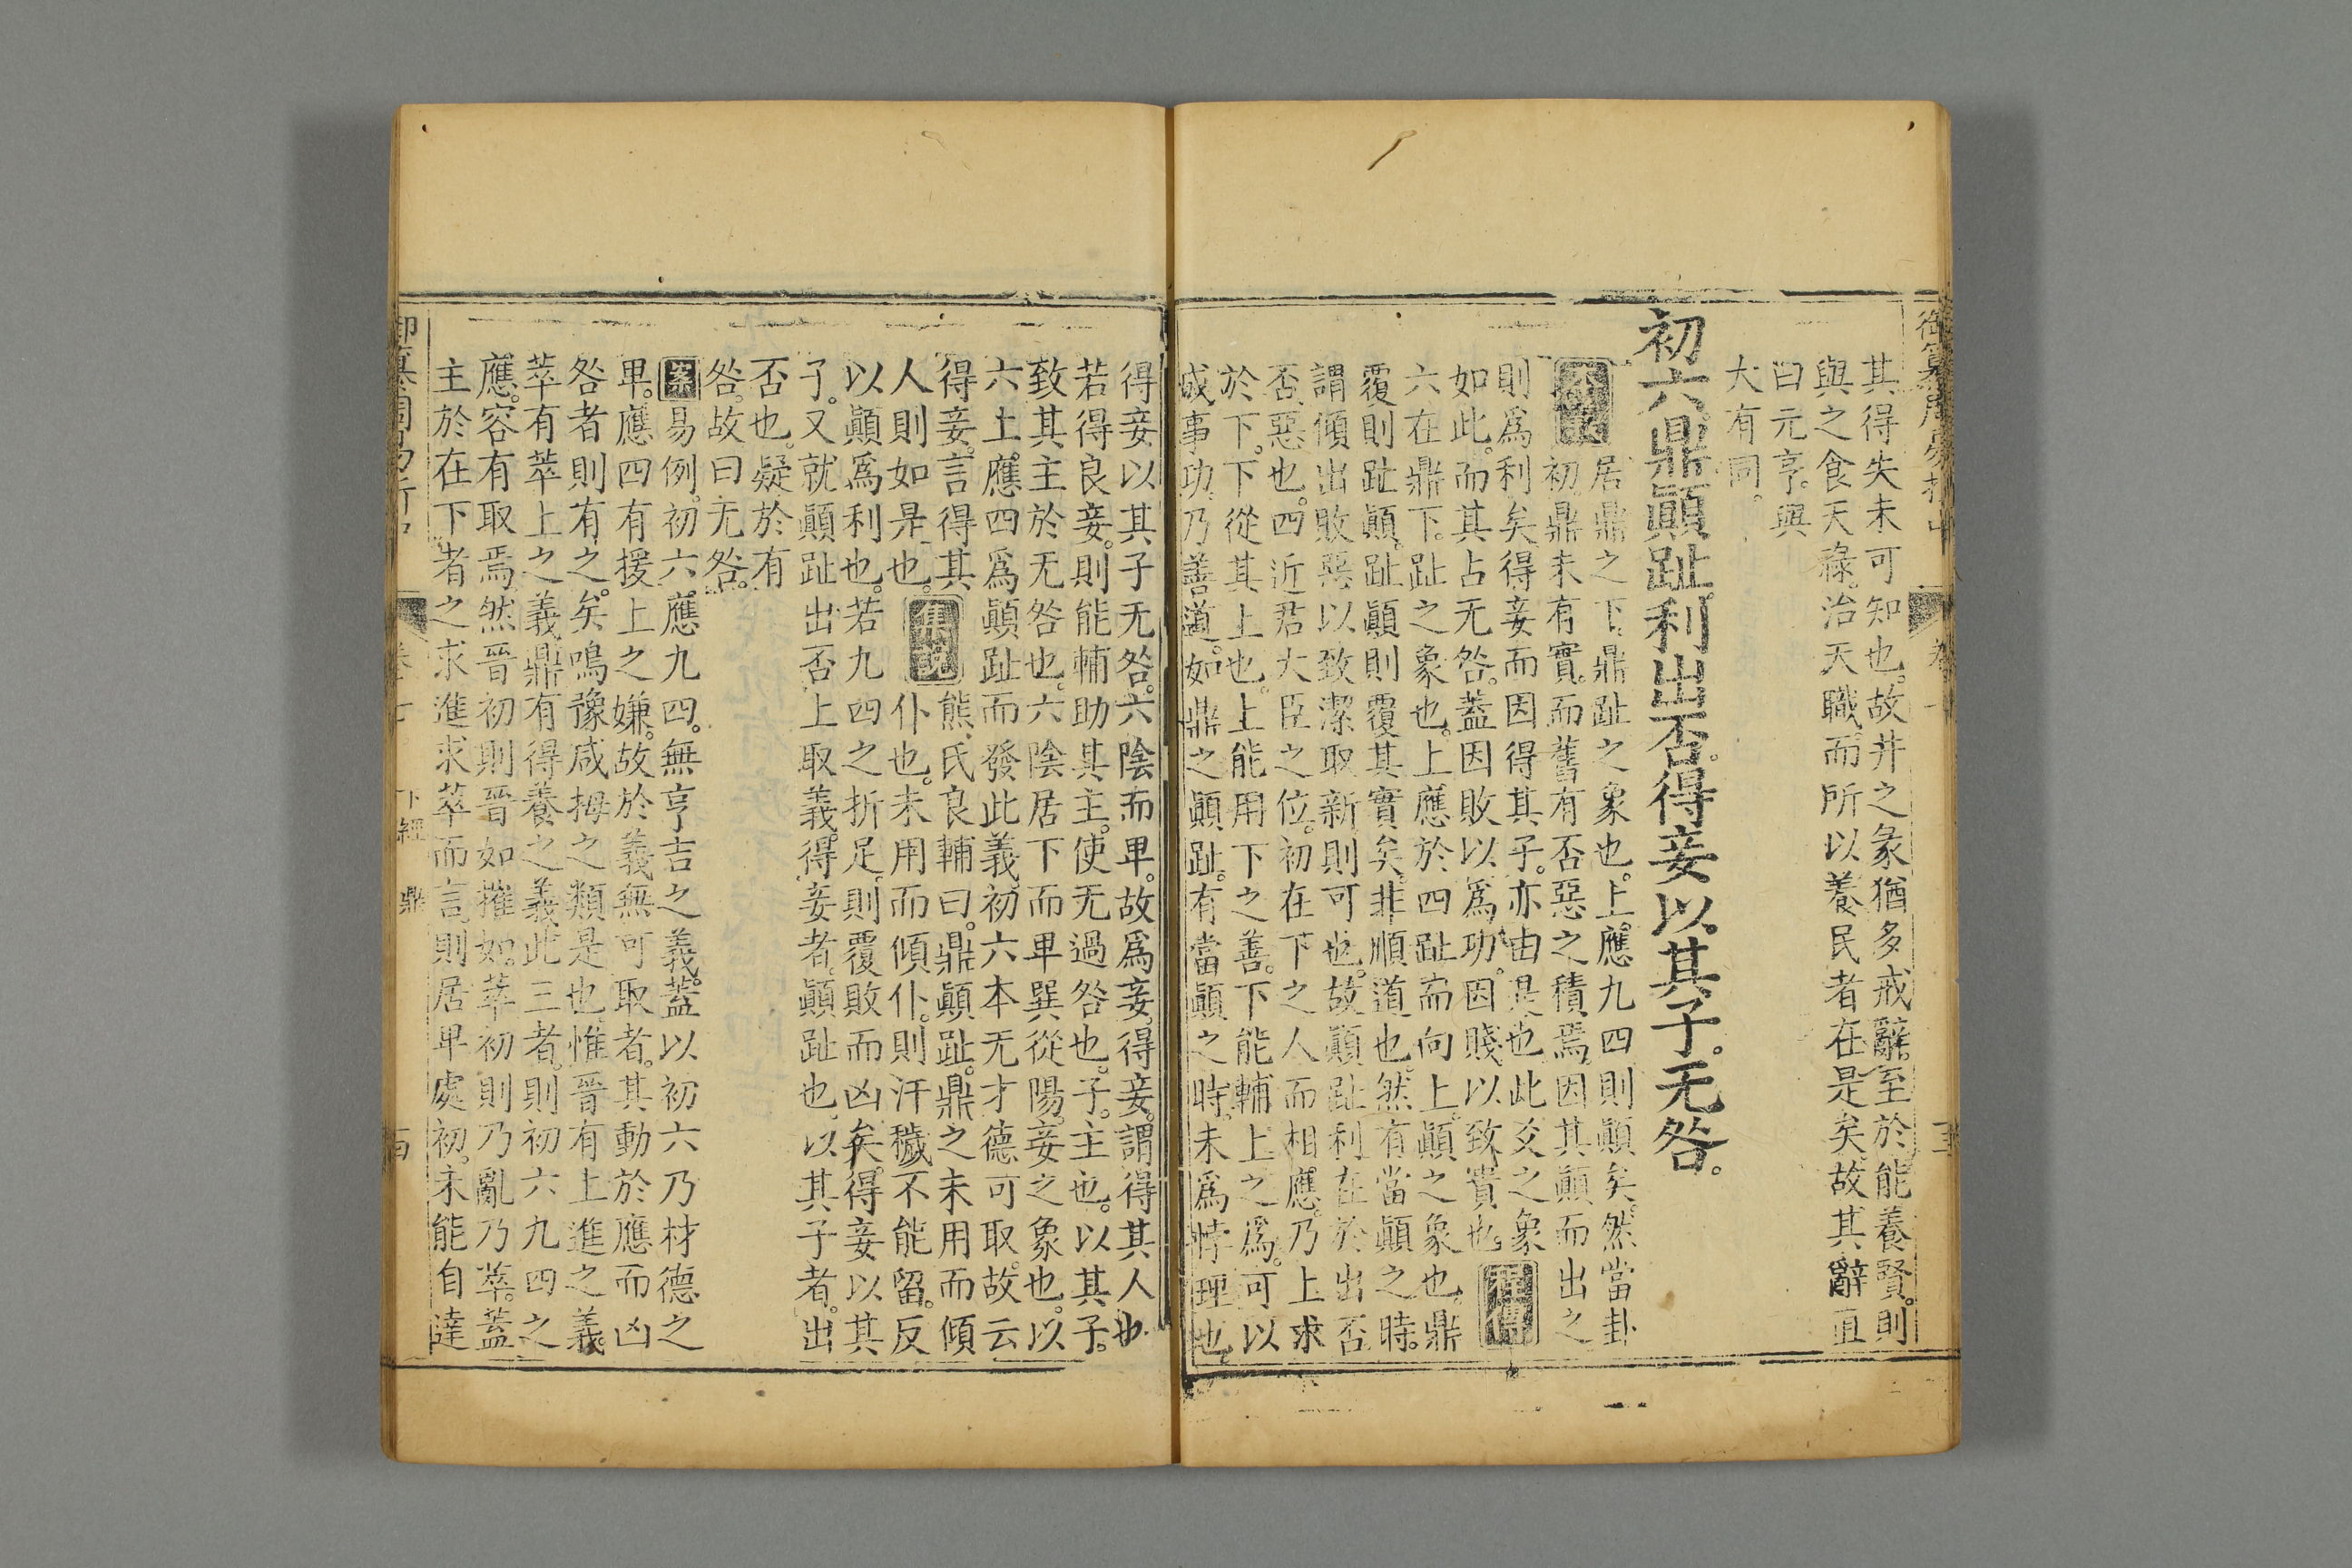 其得失未可知也。故井之彖猶多戒辭。至於能養賢。則
與之食天祿。治天職。而所以養民者在是矣。故其辭直
曰元亨。與
大有同。
初六。鼎顚趾。利出否。得妾以其子。无咎。
本義 居鼎之下。鼎趾之象也。上應九四則顚矣。然當卦
初鼎未有實。而舊有否惡之積焉。因其顚而出之
則爲利矣。得妾而因得其子。亦由是也。此爻之象
如此。而其占无咎。蓋因敗以爲功。因賤以致貴也。 程傳
六在鼎下。趾之象也。上應於四。趾而向上。顚之象也。鼎
覆則趾顚。趾顚則覆其實矣。非順道也。然有當顚之時。
謂傾出敗惡以致潔取新則可也。故顚趾利在於出否
否惡也。四近君大臣之位。初在下之人而相應。乃上求
於下。下從其上也。上能用下之善。下能輔上之爲。可以
成事功。乃善道。如鼎之顚趾。有當顚之時。未爲悖理也
得妾以其子无咎。六陰而卑。故爲妾。得妾。謂得其人也
若得良妾。則能輔助其主。使无過咎也。子。主也。以其子。
致其主於无咎也。六陰居下而卑巽從陽。妾之象也。以
六上應四爲顚趾而發此義。初六本无才德可取。故云
得妾。言得其
人則如是也。 集說 熊氏良輔曰。鼎顚趾。鼎之未用而傾
仆也。未用而傾仆。則汙穢不能留。反
以顚爲利也。若九四之折足。則覆敗而凶矣。得妾以其
子。又就顚趾出否上取義。得妾者。顚趾也。以其子者。出
否也。疑於有
咎。故曰无咎。
案 易例。初六應九四。無亨吉之義。蓋以初六乃材德之
卑。應四有援上之嫌。故於義無可取者。其動於應而凶
咎者則有之矣。鳴豫咸拇之類是也。惟晉有上進之義。
萃有萃上之義。鼎有得養之義。此三者。則初六九四之
應。容有取焉。然晉初則晉如摧如。萃初則乃亂乃萃。蓋
主於在下者之求進求萃而言。則居卑處初。未能自達
下經 鼎